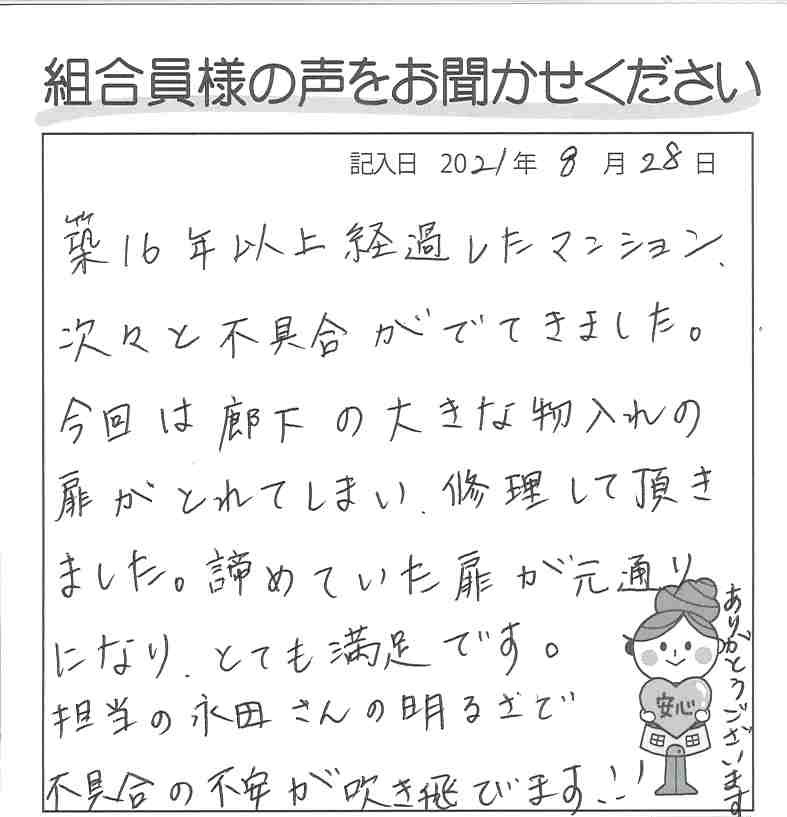 組合員様の声をお聞かせください
記入日 2021年 8月 28日
築16年以上経過したマンション、
次々と不具合がでてきました。
今回は廊下の大きな物入れの
扉がとれてしまい、修理して頂き
ました。諦めていた扉が元通り
になり、とても満足です。
担当の永田さんの明るさで
不具合の不安が吹き飛びます!!
ありがとうございます
安心